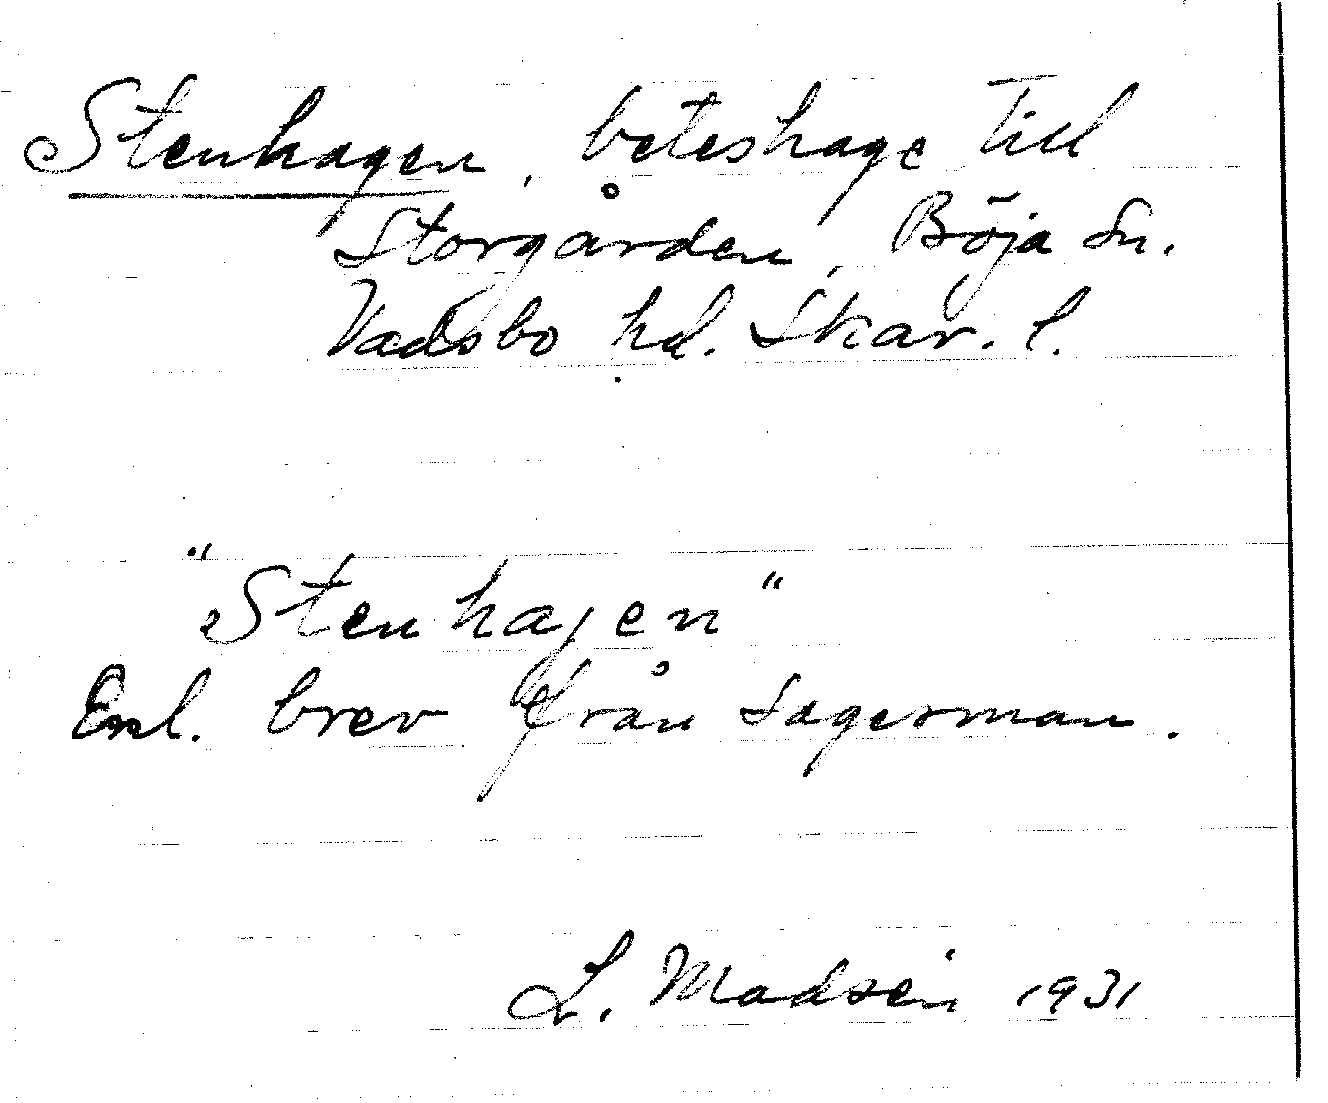 Stenhagen, beteshage till
Storgården, Böja sn.
Vadsbo hd. Skar. l.
"Stenhagen"
Enl. brev från Sagerman.
L. Madsén 1931